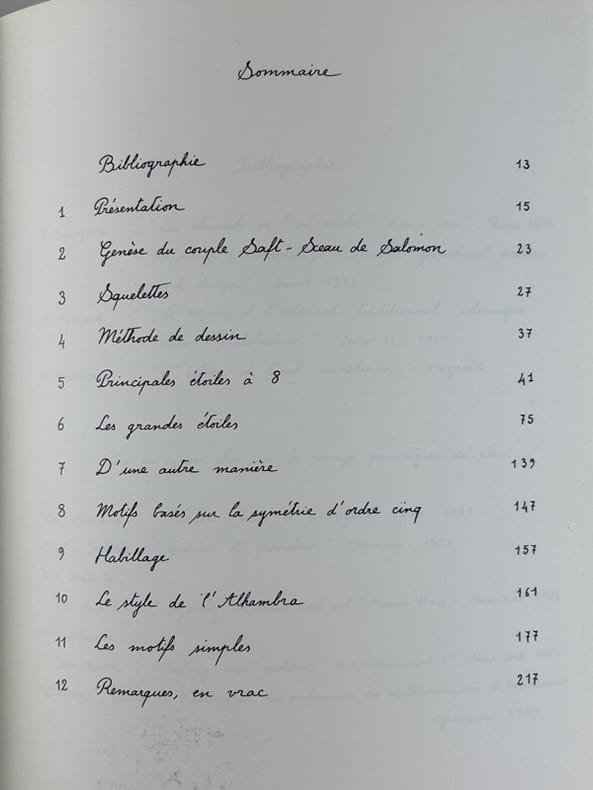 Sommaire
Bibliographie 13
1 Présentation 15
2 Genèse du couple Saft - Sceau de Salomon 23
3 Squelettes 27
4 Méthode de dessin 37
5 Principales étoiles à 8 41
6 Les grandes étoiles 75
7 D'une autre manière 139
8 Motifs basés sur la symétrie d'ordre cinq 147
9 Habillage 157
10 Le style de l'Alhambra 161
11 Les motifs simples 177
12 Remarques, en vrac 217